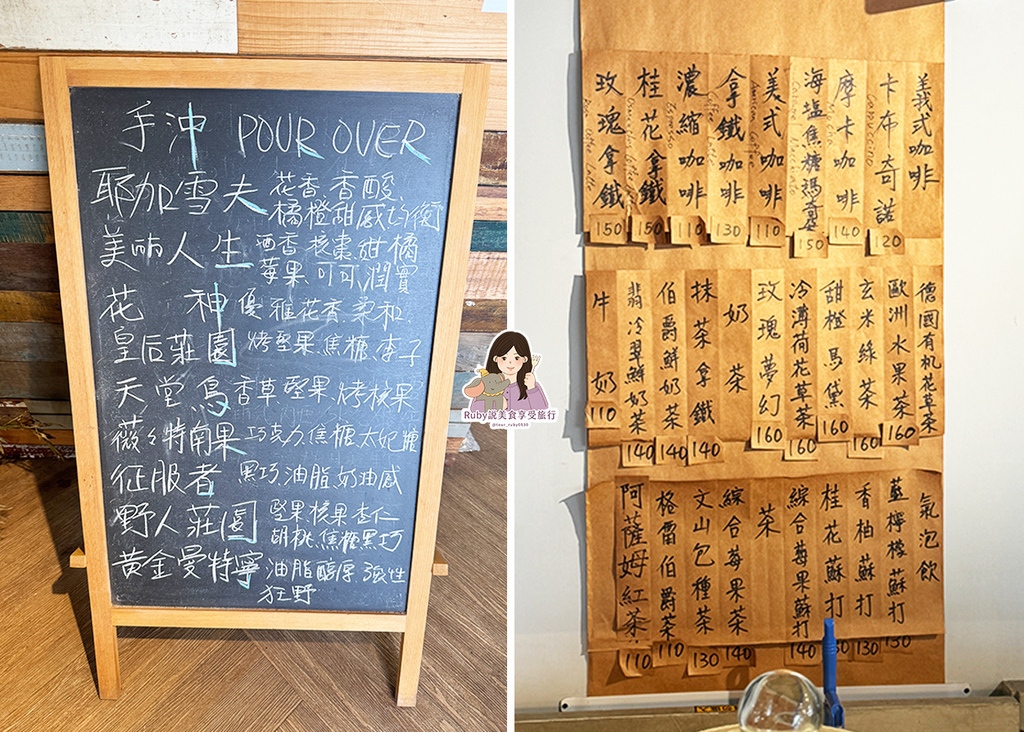 手沖 POUR OVER
耶加雪夫 花香.香酸.
橘橙甜感均衡
美麗人生 酒香 核棗 甜橘
莓果.可可.潤實
花神 優雅花香.柔和.
皇后莊園 烤堅果.焦糖.李子
天堂鳥 香草.堅果.烤核果
薇薇特南果 巧克力.焦糖.太妃糖
征服者 黑巧.油脂.奶油感
野人莊園 堅果核果.杏仁
胡桃.焦糖.黑巧
黃金曼特寧 油脂醇厚 強性
狂野
Ruby說美食享受旅行
@tour_ruby0530
義式咖啡
卡布奇諾 120
Cappuccino
摩卡咖啡 140
海塩焦糖瑪奇朵 150
美式咖啡 110
American Coffee
拿鐵咖啡 130
濃縮咖啡 110
Espresso
桂花拿鐵 150
玫瑰拿鐵 150
德國有机花草茶
歐洲水果茶 160
玄米綠茶 160
甜橙馬黛 160
冷薄荷花草茶 160
玫瑰夢幻 160
奶茶
抹茶拿鐵 140
伯爵鮮奶茶 140
翡冷翠鮮奶茶 140
牛奶 110
氣泡飲
藍檸檬蘇打 130
香柚蘇打 130
桂花蘇打 130
綜合莓果蘇打 140
茶
綜合莓果茶 140
文山包種茶 130
格雷伯爵茶 110
阿薩姆紅茶 110